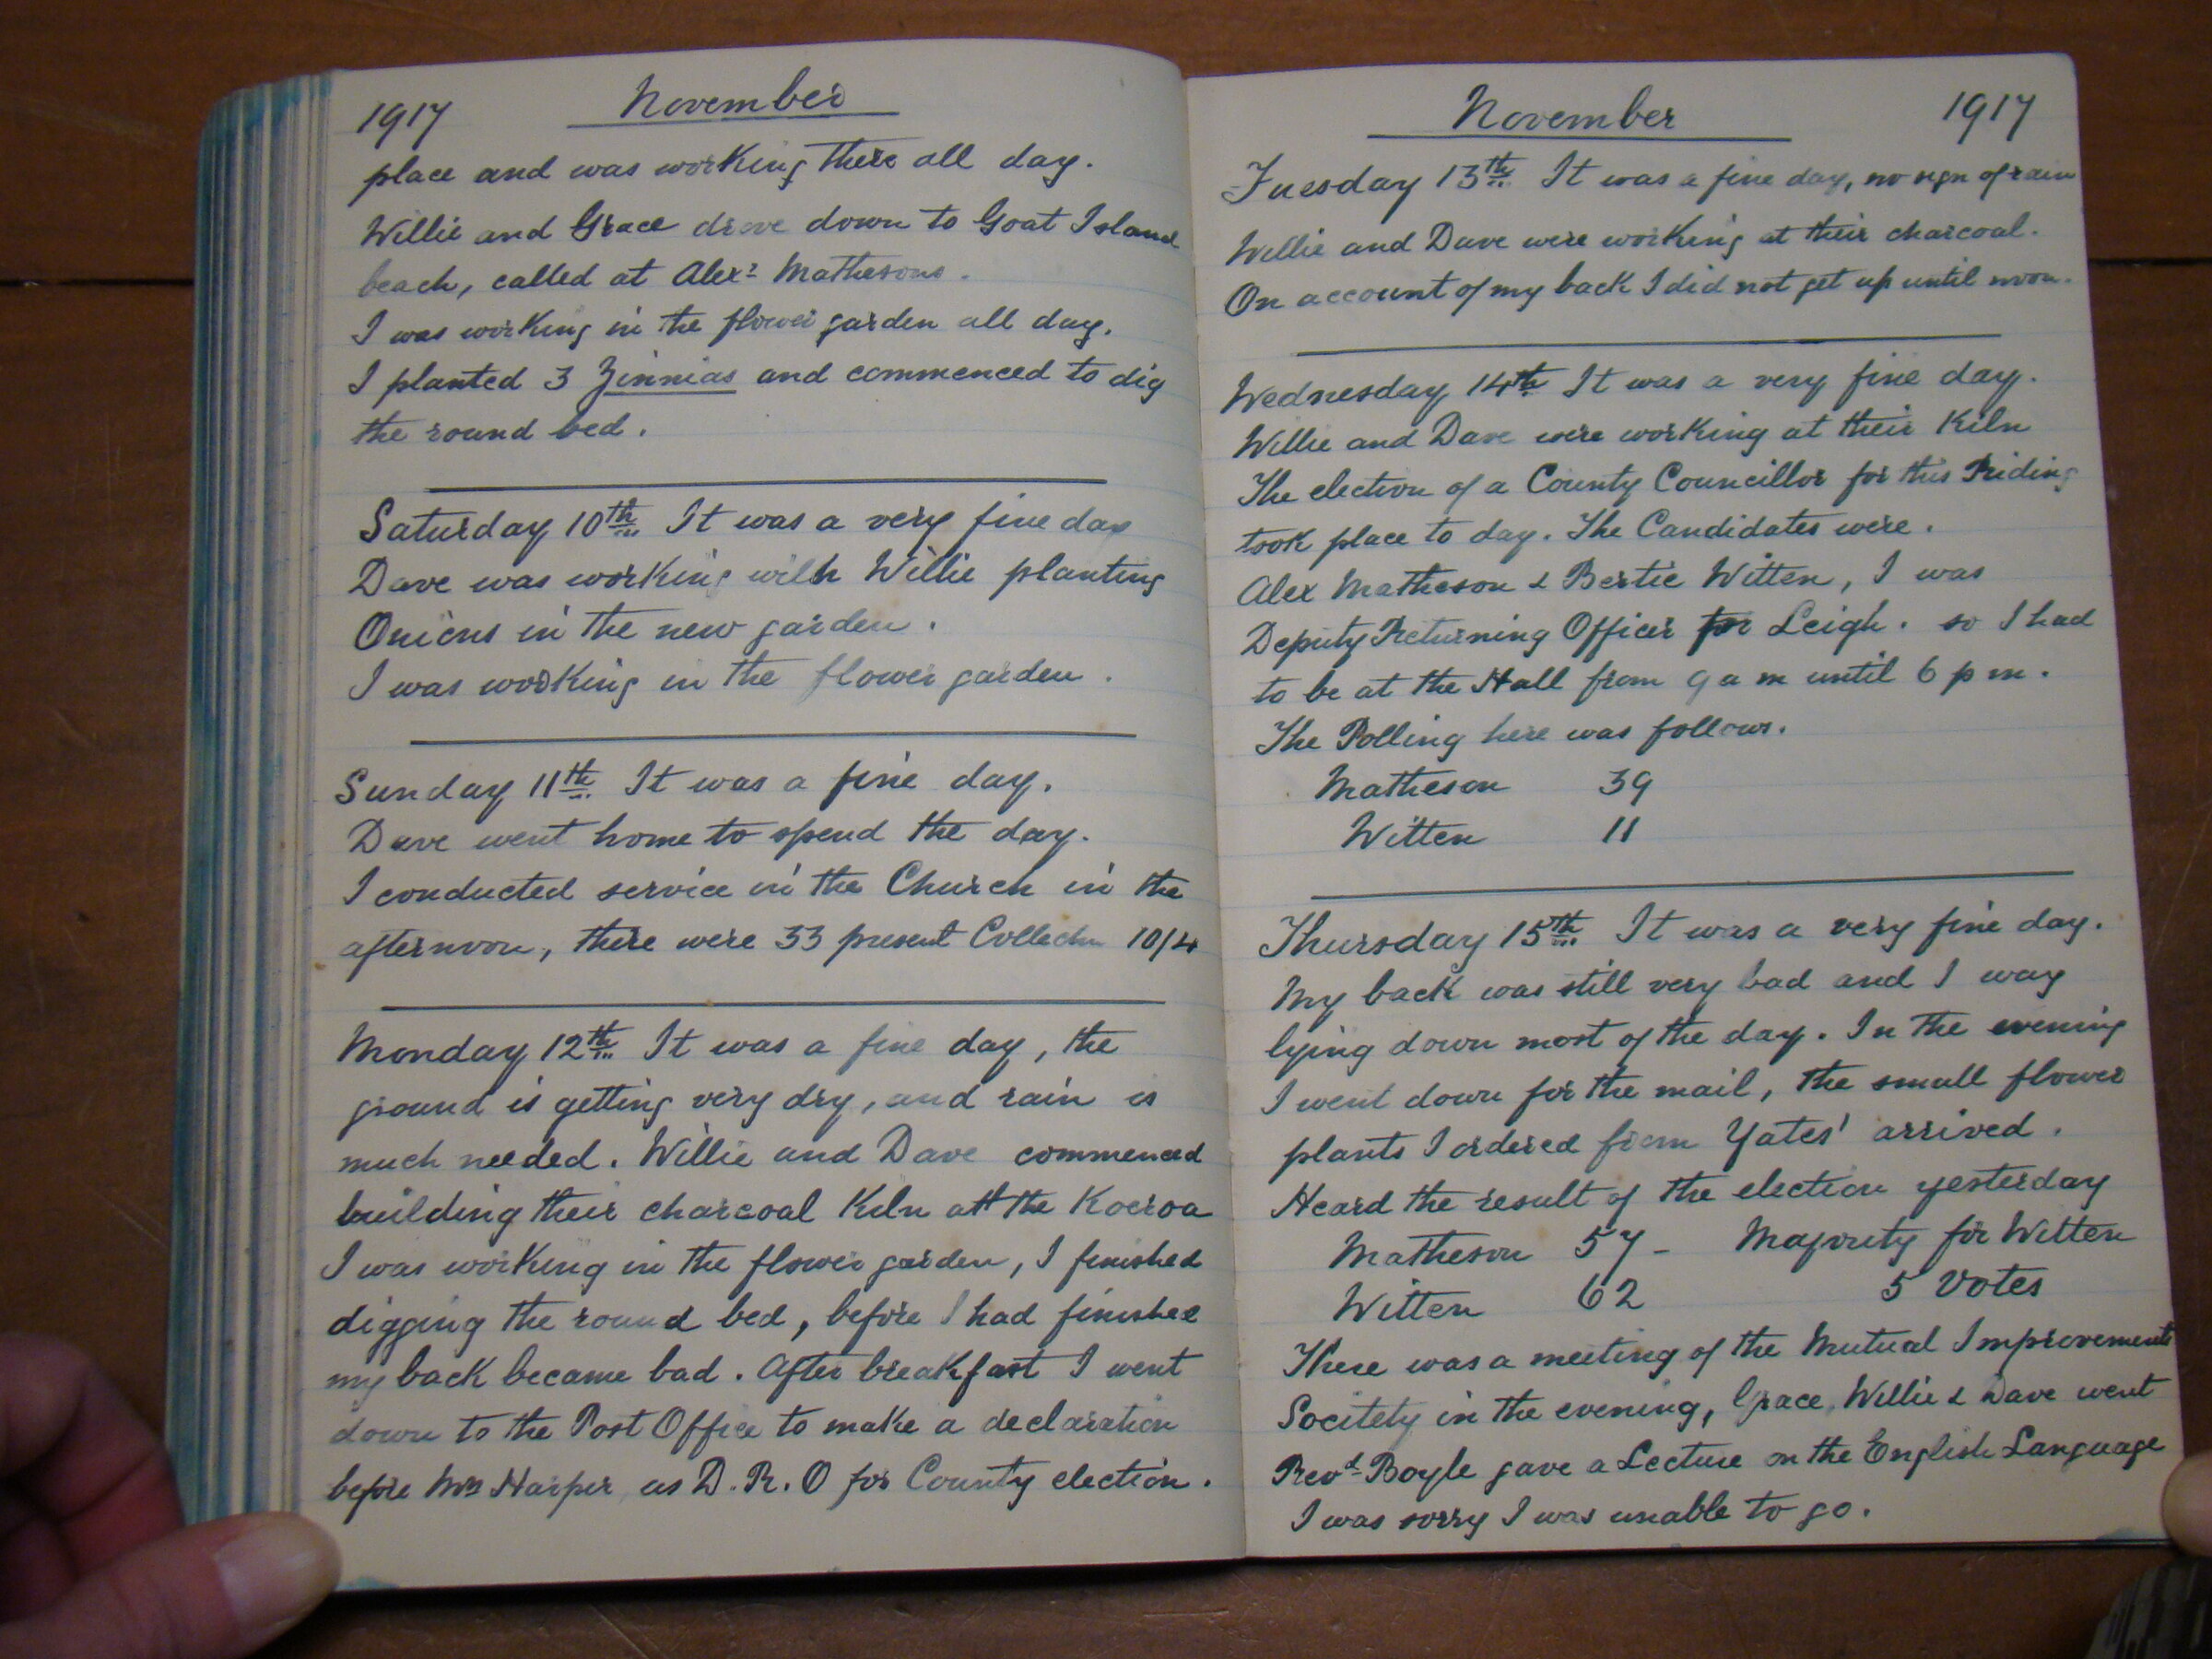 1917 November
place and was working there all day.
Willie and Grace drove down to Goat Island
beach, called at Alexr Mathesons.
I was working in the flower garden all day.
I planted 3 Zinnias and commenced to dig
the round bed.
Saturday 10th It was a very fine day
Dave was working with Willie planting
Onions in the new garden.
I was working in the flower garden.
Sunday 11th It was a fine day.
Dave went home to spend the day.
I conducted service in the Church in the
afternoon, there were 33 present Collectn 10/4
Monday 12th It was a fine day, the
ground is getting very dry, and rain is
much needed. Willie and Dave commenced
building their charcoal Kiln att the Koeroa
I was working in the flower garden, I finished
digging the round bed, before I had finished
my back became bad. After breakfast I went
down to the Post Office to make a declaration
before Mrs Harper as D.R.O for County election.
November 1917
Tuesday 13th It was a fine day, no sign of rain
Willie and Dave were working at their charcoal.
On account of my back I did not get up until noon.
Wednesday 14th It was a very fine day.
Willie and Dave were working at their Kiln
The election of a County Councillor for this Riding
took place to day. The Candidates were.
Alex Matheson & Bertie Witten, I was
Deputy Returning Officer for Leigh. so I had
to be at the Hall from 9 a m until 6 p m.
The Polling here was follows.
Matheson 39
Witten 11
Thursday 15th It was a very fine day.
My back was still very bad and I way
lying down most of the day. In the evening
I went down for the mail, the small flower
plants I ordered from Yates' arrived.
Heard the result of the election yesterday
Matheson 57 - Majority for Witten
Witten 62 5 Votes
There was a meeting of the Mutual Improvements
Socitety in the evening, Grace, Willie & Dave went
Revd Boyle gave a Lecture on the English Language
I was sorry I was unable to go.